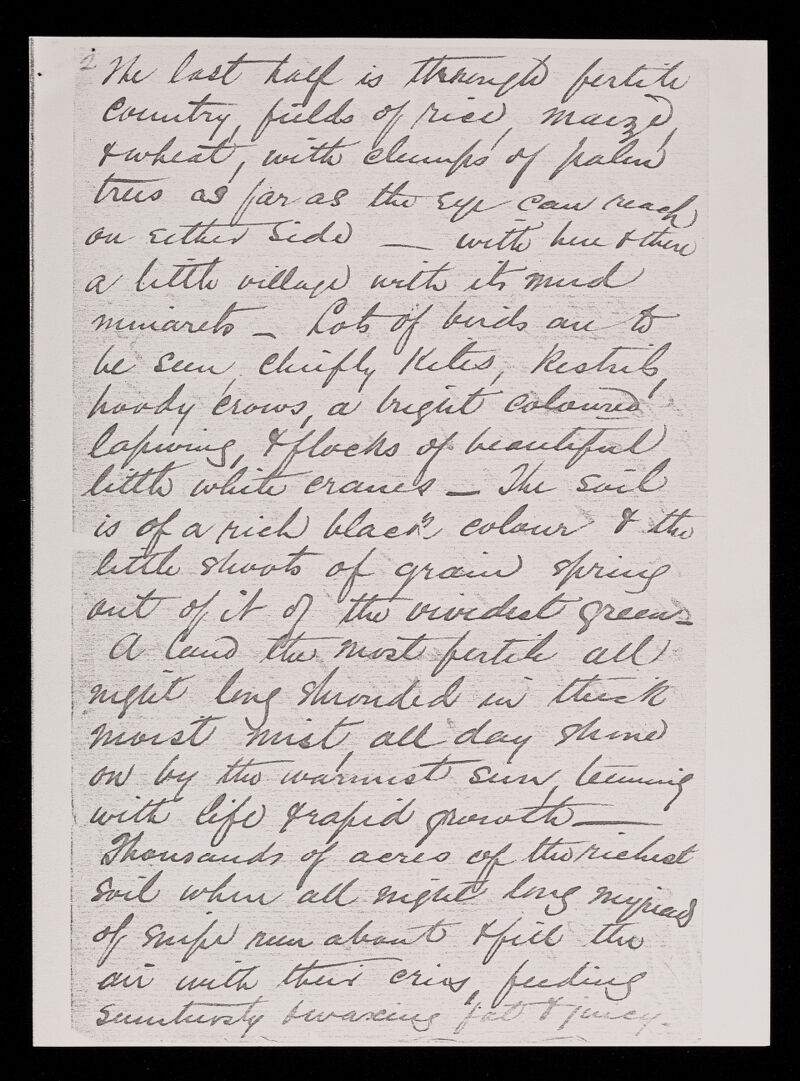 2
The last half is through fertile
country, fields of rice, maize,
& wheat, with clumps of palm
trees as far as the eye can reach
on either side — with here & there
a little village with its mud
minarets — Lots of birds are to
be seen, chiefly Kites, Kestrils,
hoody crows, a bright coloured
lapwing, & flocks of beautiful
little white cranes — The soil
is of a rich black colour & the
little shoots of grain spring
out of it of the vividest green —
A land the most fertile all
night long shrouded in thick
moist mist, all day shone
on by the warmest sun, teeming
with life & rapid growth —
Thousands of acres of the richest
soil where all night long myriads
of snipe run about & fill the
air with their cries, feeding
& waxing fat & juicy.